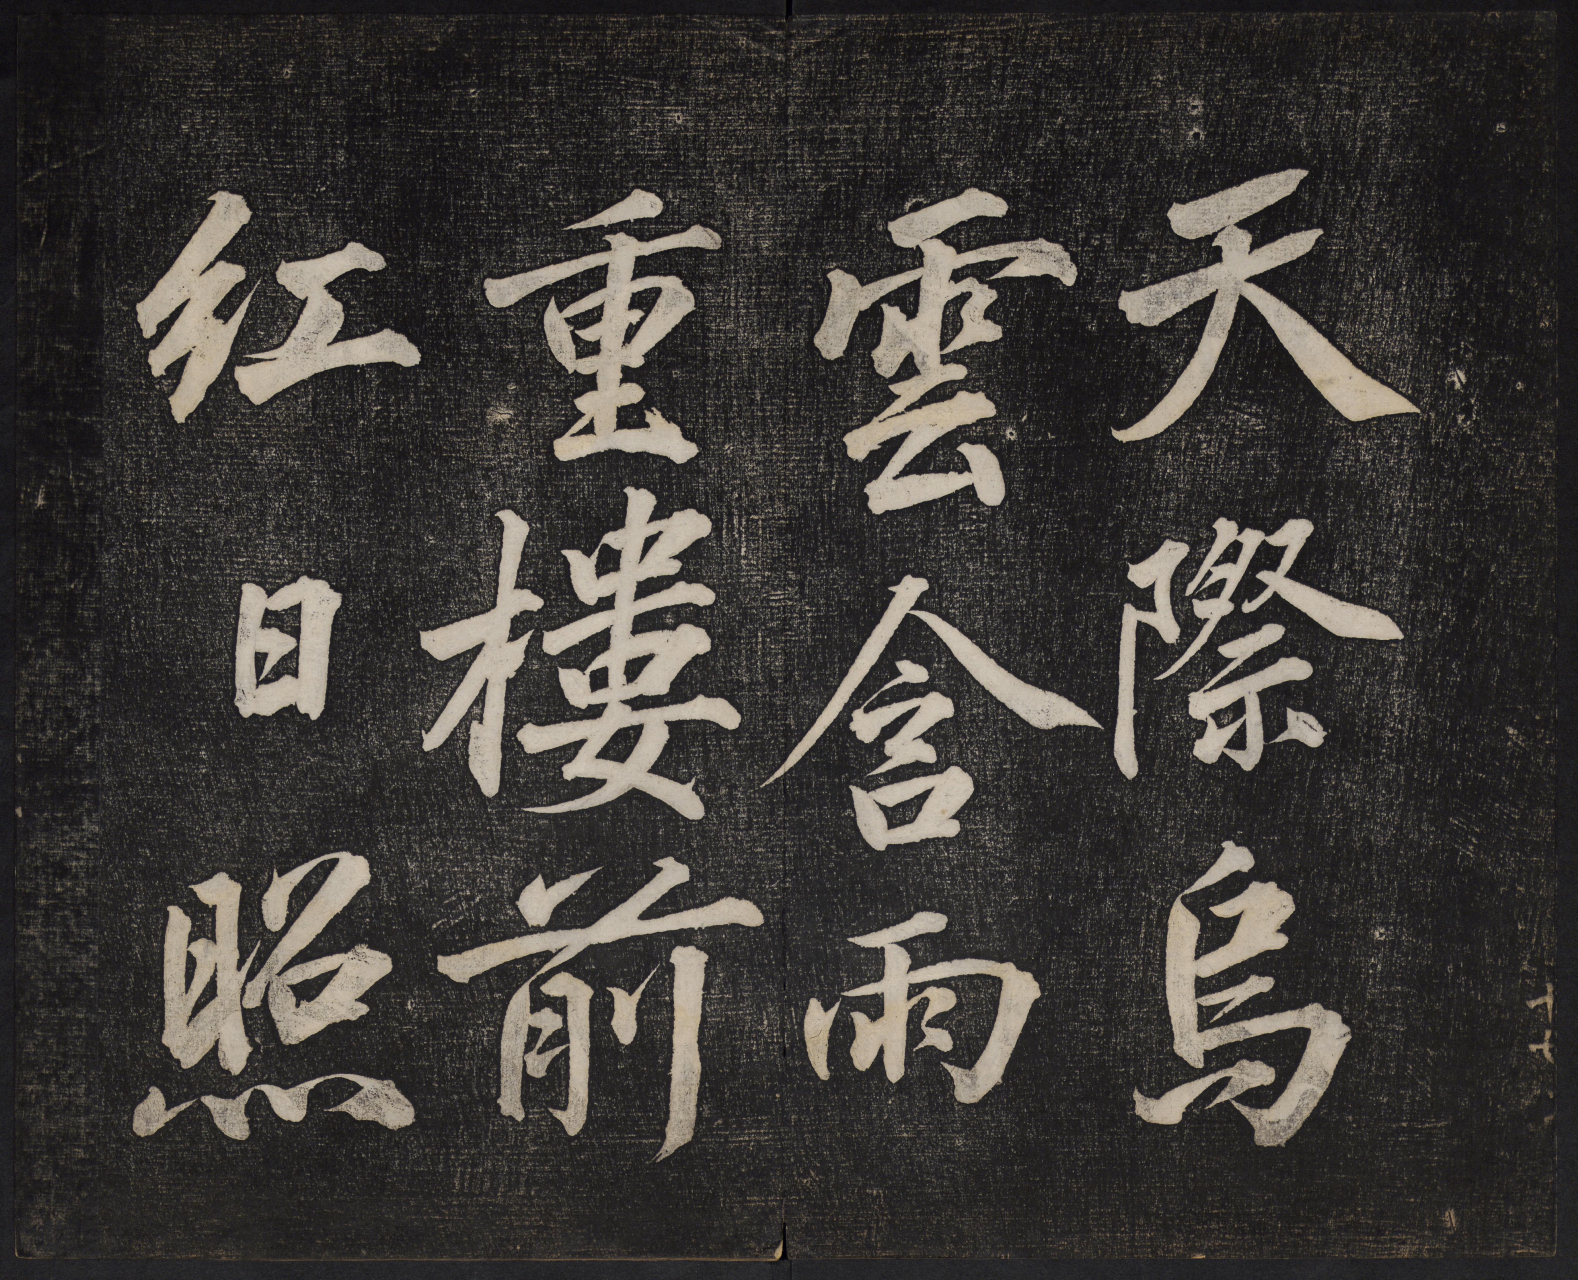 天際烏
雲含雨
重樓前
紅日照